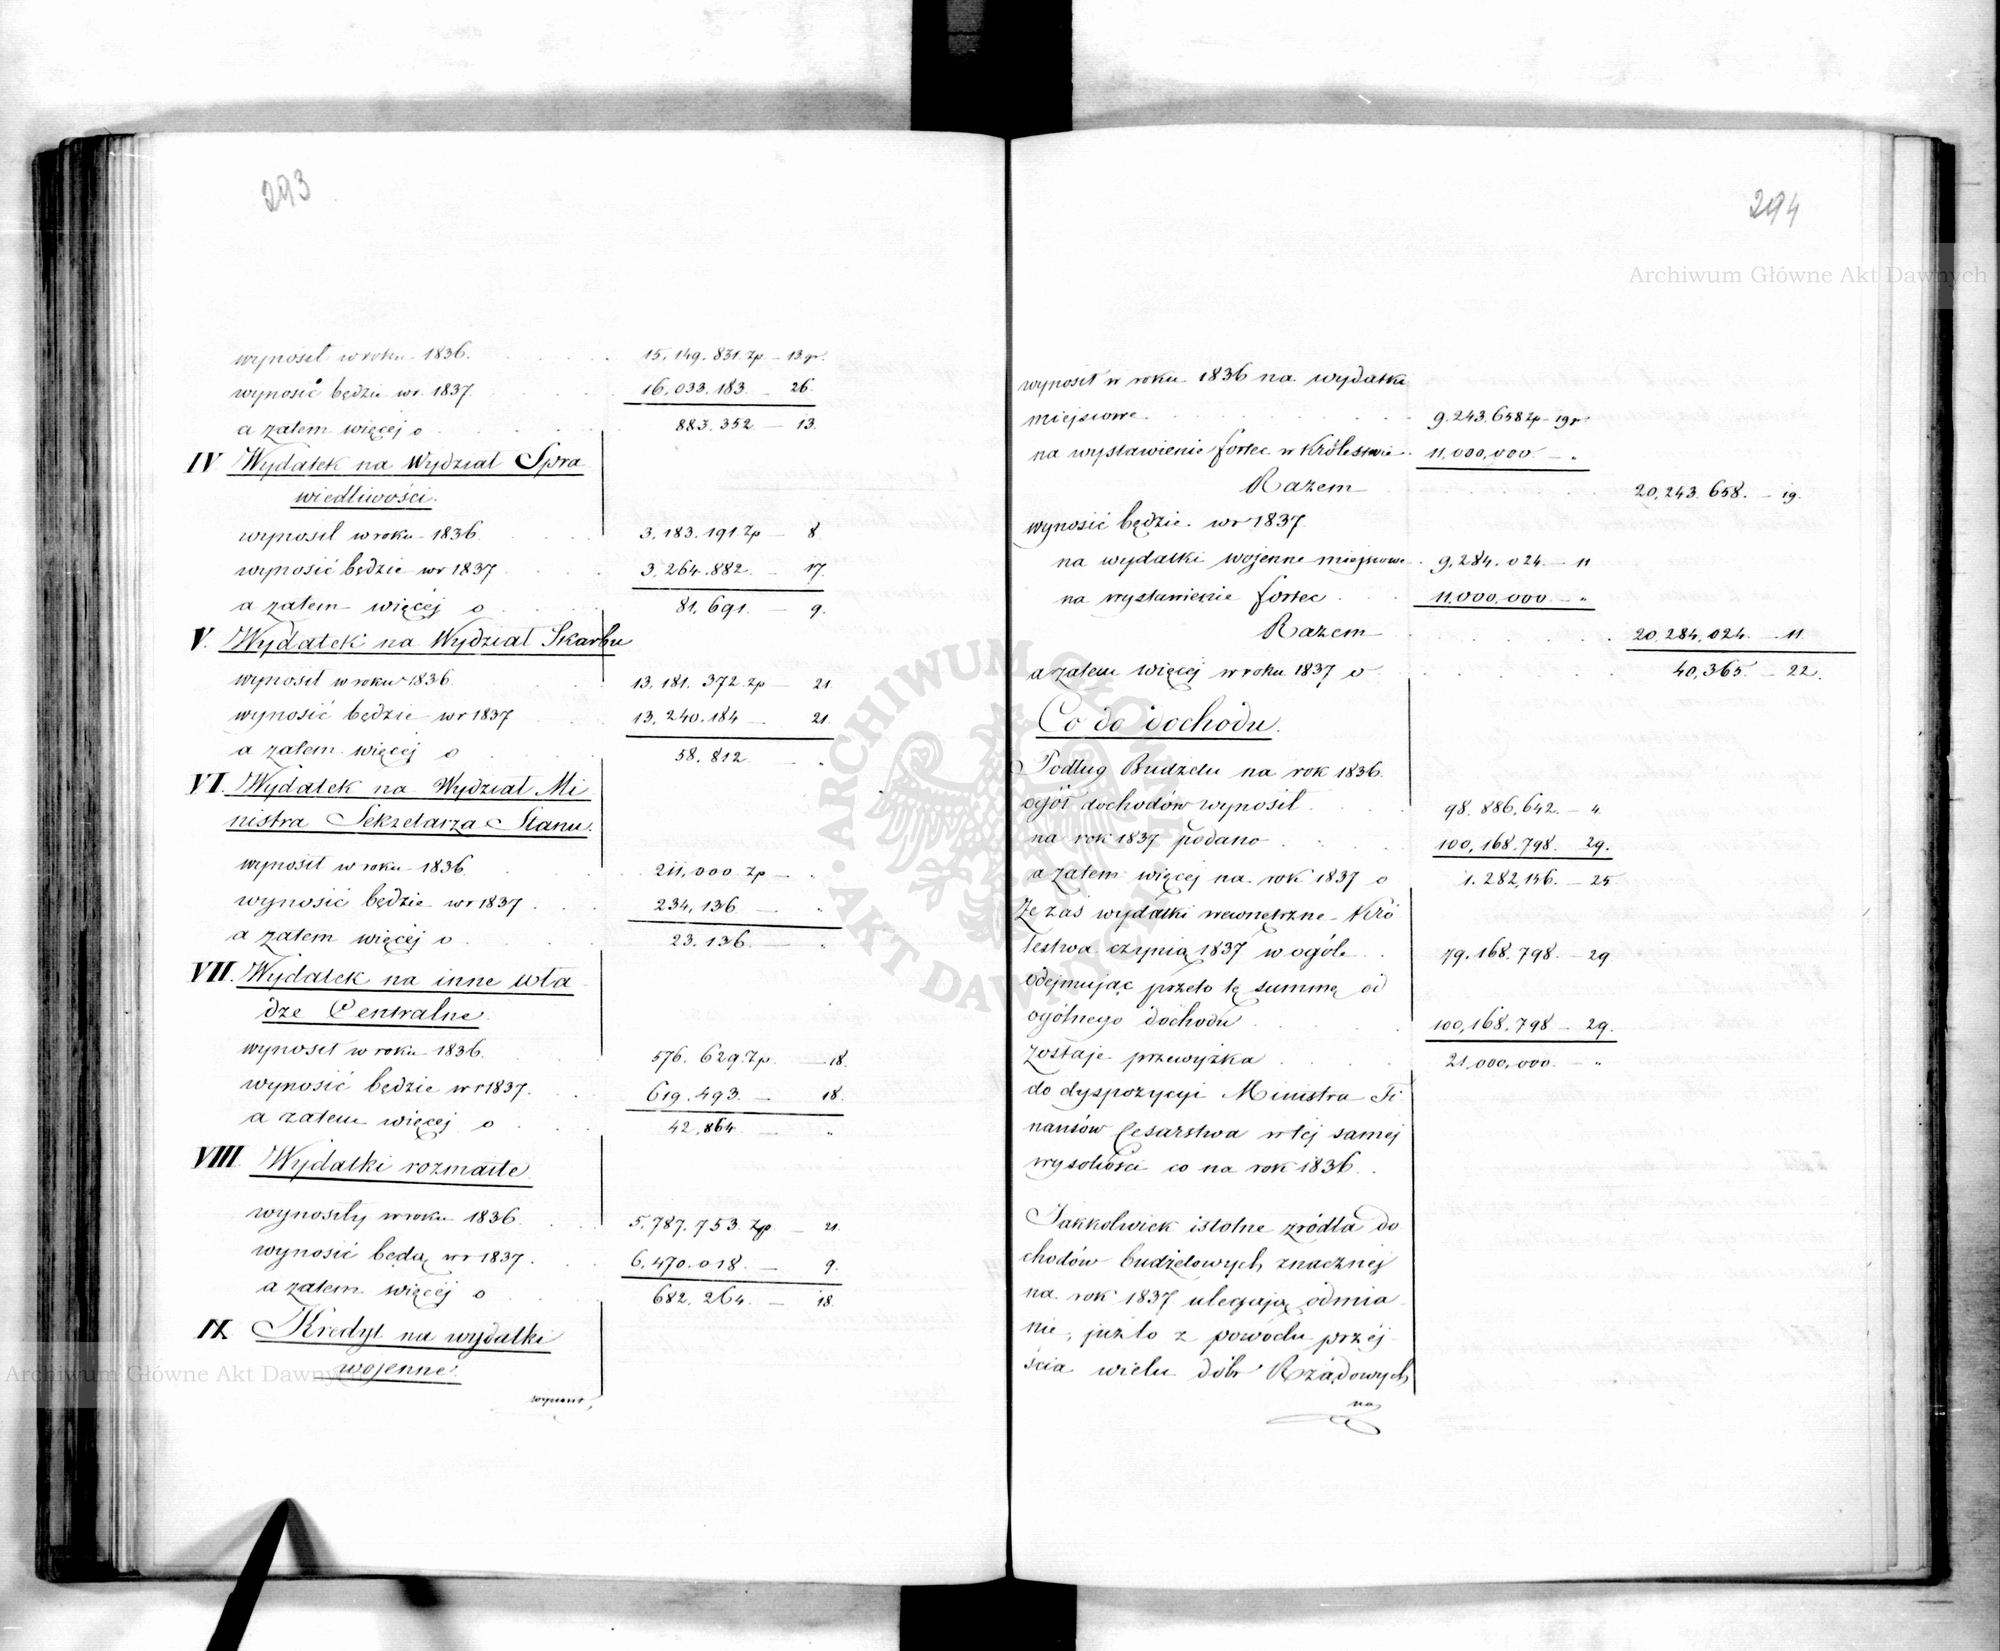 293
wynosił w roku 1836. 15,149,831. Zp — 13 gr.
wynosić będzie w r. 1837. 16,033,183. — 26.
a zatem więcej o 883,352 — 13.
IV Wydatek na Wydział Spra
wiedliwości.
wynosił w roku 1836. 3,183,191. Zp — 8
wynosić będzie w r 1837 3,264,882. — 17.
a zatem więcéj o 81,691. — 9.
V. Wydatek na Wydział Skarbu
wynosił w roku 1836. 13,181,372. Zp — 21.
wynosić będzie w r 1837 13,240,184 — 21.
a zatem więcéj o 58,812 — „
VI. Wydatek na Wydział Mi
nistra Sekretarza Stanu.
wynosił w roku 1836 211,000 Zp — „
wynosić będzie w r 1837 234,136 — „
a zatem więcéj o 23,136 — „
VII. Wydatek na inne Wła
dze Centralne.
wynosił w roku 1836. 576,629. Zp. — 18.
wynosić będzie w r 1837. 619,493. — 18.
a zatem więcej o 42,864 — „
VIII. Wydatki rozmaite.
wynosiły w roku 1836. 5,787,753. Zp — 21.
wynosić będą w r 1837. 6,470,018. — 9.
a zatem więcéj o 682,264. — 18.
IX Kredyt na wydatki
wojenne.
294
wynosił w roku 1836 na wydatki
miejscowe 9,243,658 Zp — 19 gr.
na wystawienie fortec w Królestwie 11,000,000. — „
Razem 20,243,658. — 19.
wynosić będzie w r 1837.
na wydatki wojenne miejscowe 9,284,024. — 11
na wystawienie fortec 11,000,000 — „
Razem 20,284,024. — 11.
a zatem więcéj w roku 1837 o 40,365 — 22.
Co do dochodu.
Podług Budżetu na rok 1836.
ogół dochodów wynosił 98,886,642. — 4.
na rok 1837 podano 100,168,798. 29.
a zatem więcej na rok 1837 o 1,282,156. — 25.
Że zaś wydatki wewnętrzne Kró
lestwa czynią 1837 w ogóle 79,168,798. — 29
odejmując przeto tę summę od
ogólnego dochodu 100,168,798 — 29.
zostaje przewyżka 21,000,000. — „
do dyspozycyi Ministra Fi
nansów Cesarstwa w tej samej
wysokości co na rok 1836.
Jakkolwiek istotne źródła do
chodów budżetowych znacznej
na rok 1837 ulegają odmia
nie, już to z powodu przej
ścia wielu dóbr Rządowych
na
Archiwum Główne Akt Dawnych
Archiwum Główne Akt Dawnych
ARCHIWUM GŁÓWNE AKT DAWNYCH